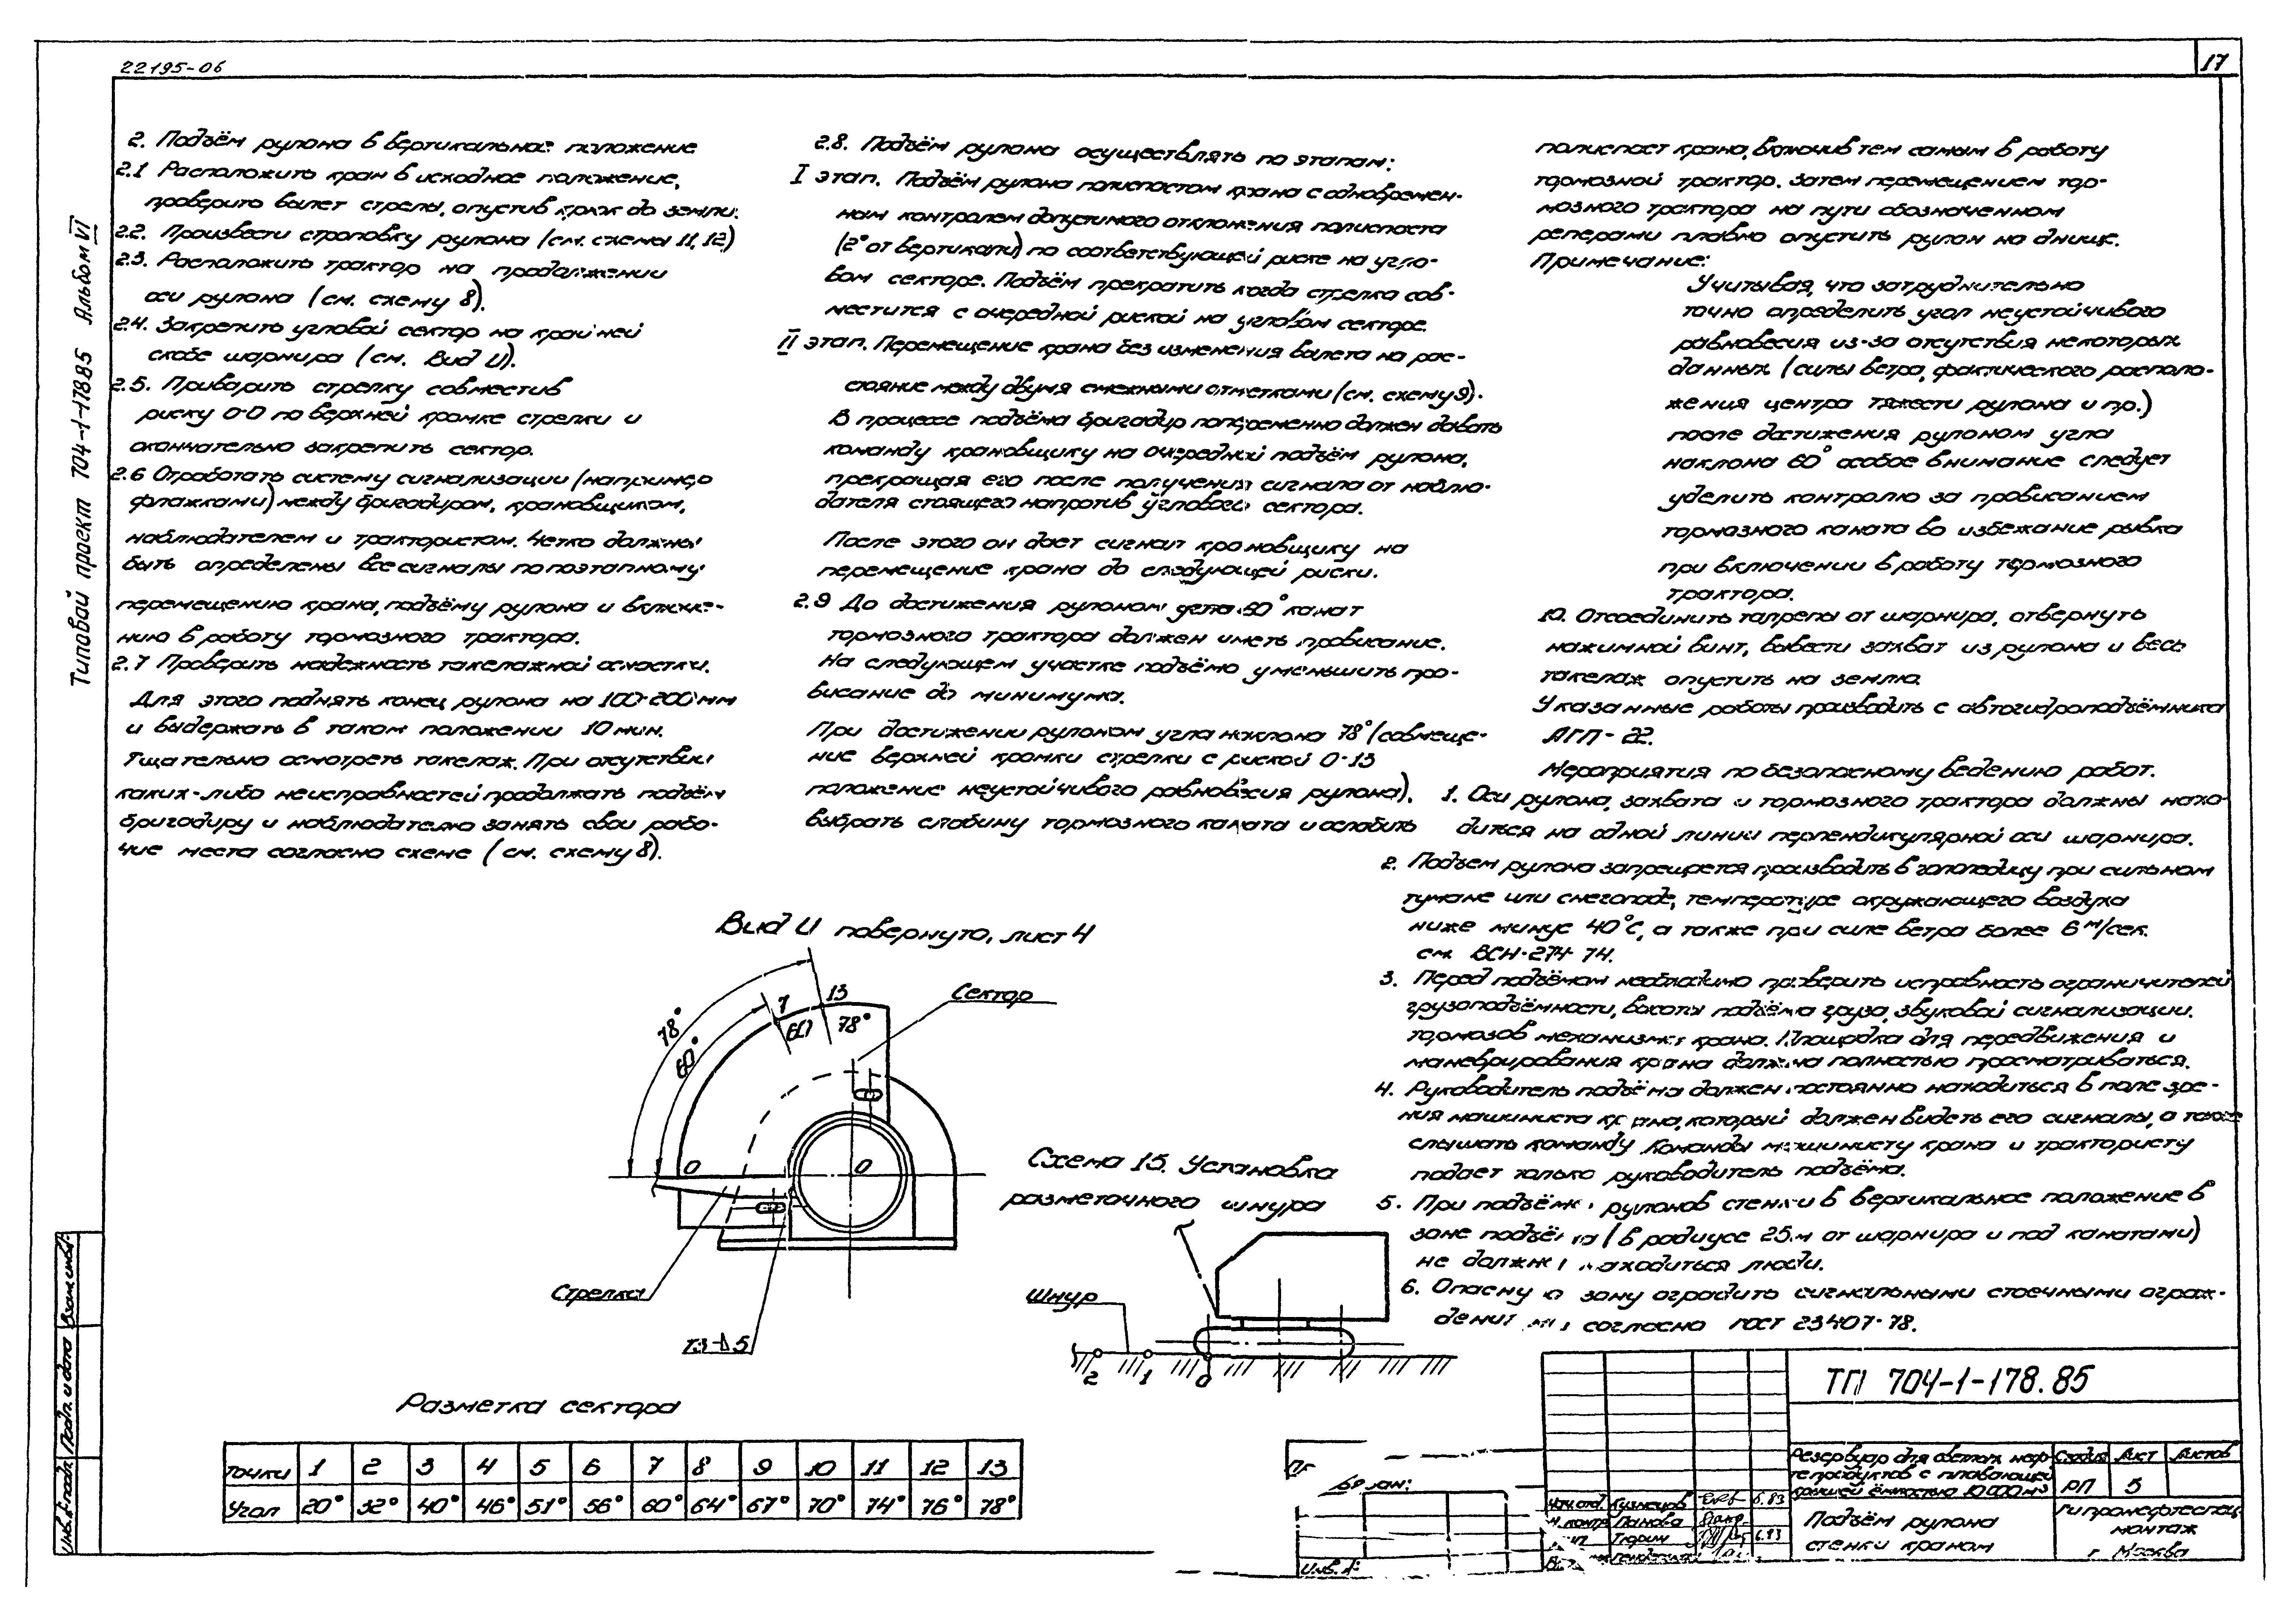 22195-06
17
Типовой проект 704-1-178.85 Альбом VI
2. Подъём рулона в вертикальное положение
2.1 Расположить кран в исходное положение,
проверить вылет стрелы, опустив крюк до земли.
2.2. Произвести строповку рулона (см. схема 11, 12)
2.3. Расположить трактор на продолжении
оси рулона (см. схему 8).
2.4. Закрепить угловой сектор на крайней
скобе шарнира (см. Вид U).
2.5. Приварить стрелку совместив
риску 0-0 по верхней кромке стрелки и
окончательно закрепить сектор.
2.6 Отработать систему сигнализации (например
флажками) между бригадиром, крановщиком,
наблюдателем и трактористом. Четко должны
быть определены все сигналы по поэтапному
перемещению крана, подъёму рулона и включе-
нию в работу тормозного трактора.
2.7 Проверить надежность такелажной оснастки.
Для этого поднять конец рулона на 100-200 мм
и выдержать в таком положении 10 мин.
Тщательно осмотреть такелаж. При отсутствии
каких-либо неисправностей продолжать подъём
бригадиру и наблюдателю занять свои рабо-
чие места согласно схеме (см. схему 8).
2.8. Подъём рулона осуществлять по этапам:
I этап. Подъём рулона полиспастом крана с одновремен-
ным контролем допустимого отклонения полиспаста
(2° от вертикали) по соответствующей риске на угло-
вом секторе. Подъём прекратить когда стрелка сов-
местится с очередной риской на угловом секторе.
II этап. Перемещение крана без изменения вылета на рас-
стояние между двумя смежными отметками (см. схему 9).
В процессе подъёма бригадир попеременно должен давать
команду крановщику на очередной подъём рулона,
прекращая его после получения сигнала от наблю-
дателя стоящего напротив углового сектора.
После этого он дает сигнал крановщику на
перемещение крана до следующей риски.
2.9 До достижения рулоном угла 60° канат
тормозного трактора должен иметь провисание.
На следующем участке подъёма уменьшить про-
висание до минимума.
При достижении рулоном угла наклона 78° (совмеще-
ние верхней кромки стрелки с риской 0-13
положение неустойчивого равновесия рулона).
выбрать слабину тормозного каната и ослабить
полиспаст крана, включив тем самым в работу
тормозной трактор. Затем перемещением тор-
мозного трактора на пути обозначенном
реперами плавно опустить рулон на днище.
Примечание:
Учитывая, что затруднительно
точно определить угол неустойчивого
равновесия из-за отсутствия некоторых
данных (силы ветра, фактического располо-
жения центра тяжести рулона и пр.)
после достижения рулоном угла
наклона 60° особое внимание следует
уделить контролю за провисанием
тормозного каната во избежание рывка
при включении в работу тормозного
трактора.
10. Отсоединить талрепы от шарнира, отвернуть
нажимной винт, вывести захват из рулона и весь
такелаж опустить на землю.
Указанные работы производить с автогидроподъёмника
АГП-22.
Мероприятия по безопасному ведению работ.
1. Оси рулона, захвата и тормозного трактора должны нахо-
диться на одной линии перпендикулярной оси шарнира.
2. Подъем рулона запрещается производить в гололедицу при сильном
тумане или снегопаде, температуре окружающего воздуха
ниже минус 40°С, а также при силе ветра более 6 м/сек.
см. ВСН-274-74.
3. Перед подъёмом необходимо проверить исправность ограничителей
грузоподъёмности, высоты подъёма груза, звуковой сигнализации,
тормозов механизмов крана. Площадка для передвижения и
маневрирования крана должна полностью просматриваться.
4. Руководитель подъёма должен постоянно находиться в поле зре-
ния машиниста крана, который должен видеть его сигналы, а также
слышать команду. Команды машинисту крана и трактористу
подает только руководитель подъёма.
5. При подъёме рулонов стенки в вертикальное положение в
зоне подъёма (в радиусе 25 м от шарнира и под канатами)
не должны находиться люди.
6. Опасную зону оградить сигнальными стоечными ограж-
дениями согласно ГОСТ 23407-78.
Вид U повернуто, лист 4
78°
60°
7
13
60
78°
Сектор
0
0
Стрелка
Т3-⊿5
Схема 15. Установка
разметочного шнура
Шнур
2
1
0
Разметка сектора
точки 1 2 3 4 5 6 7 8 9 10 11 12 13
Угол 20° 32° 40° 46° 51° 56° 60° 64° 67° 70° 74° 76° 78°
ТП 704-1-178.85
Резервуар для светлых неф-
тепродуктов с плавающей
крышей ёмкостью 10 000 м³
Стадия Лист Листов
РП 5
Подъём рулона
стенки краном
Гипронефтеспец-
монтаж
г. Москва
Нач. отд. Кузнецов 6.83
Н. контр. Панова
Тюрин 6.83
Инв. №
Взам. инв. №
Подп. и дата
Инв. № подл.